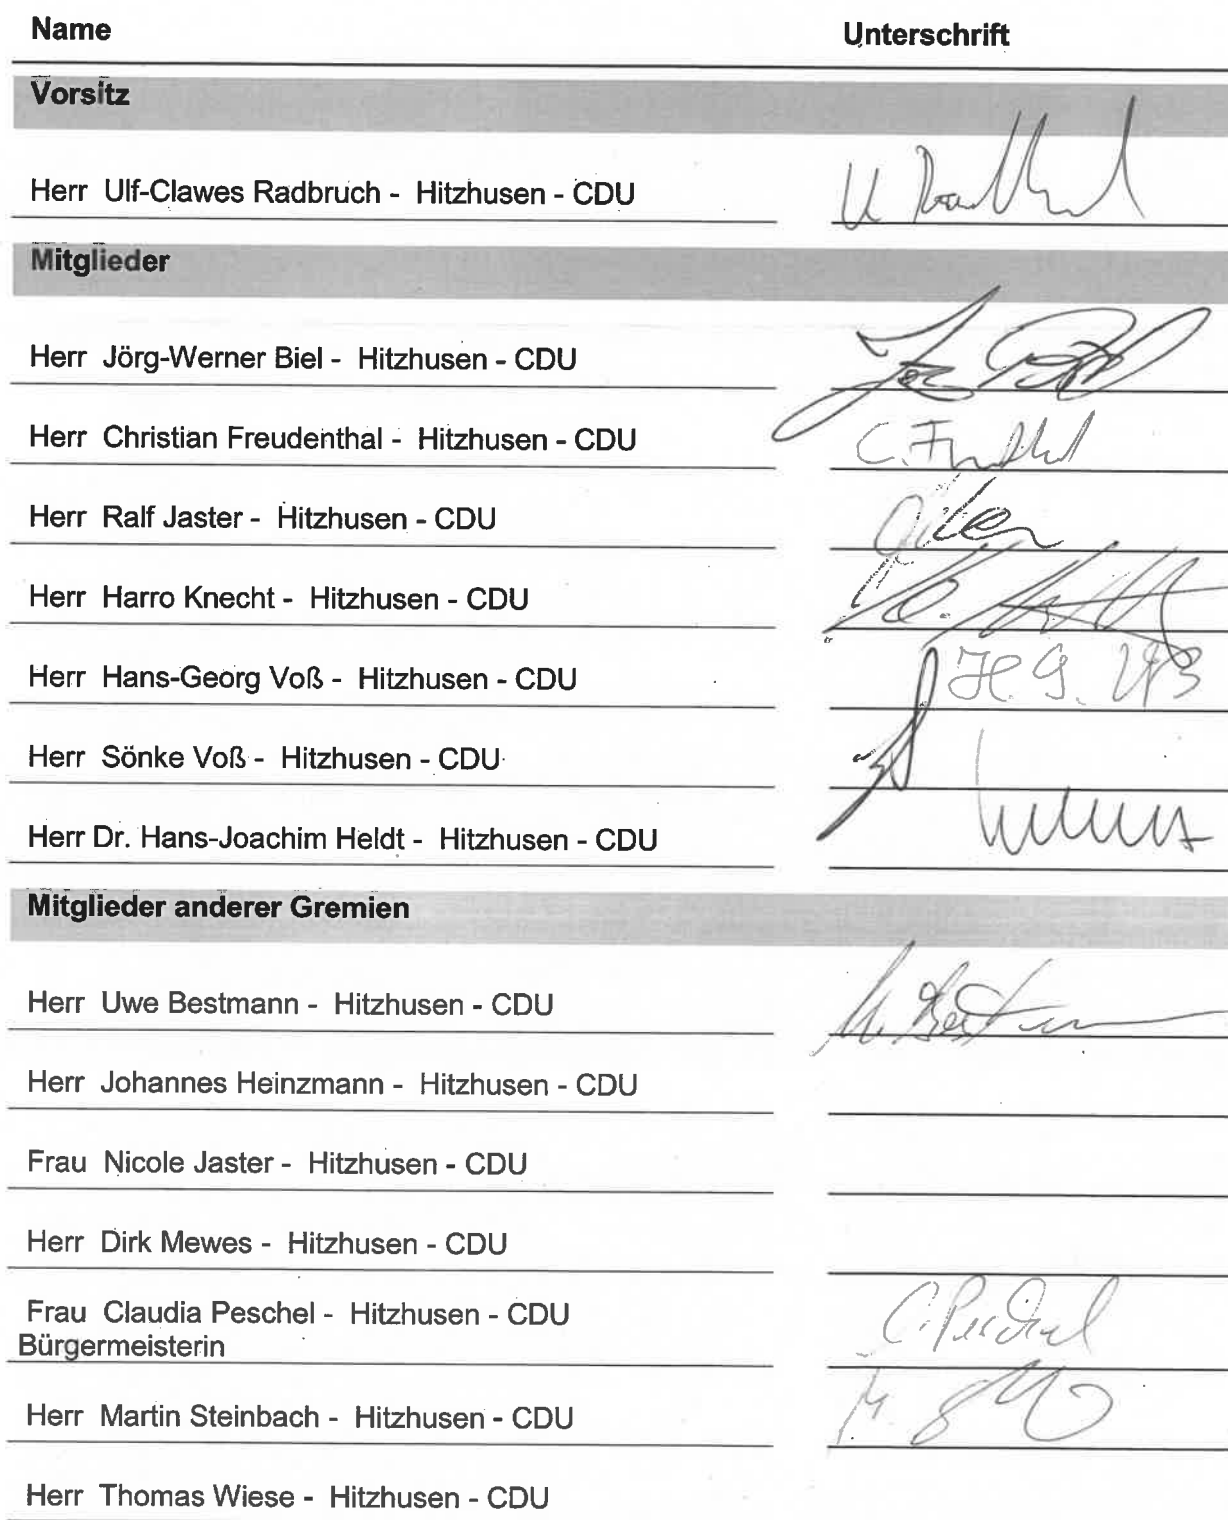 Name Unterschrift
Vorsitz
Herr Ulf-Clawes Radbruch - Hitzhusen - CDU
Mitglieder
Herr Jörg-Werner Biel - Hitzhusen - CDU
Herr Christian Freudenthal - Hitzhusen - CDU
Herr Ralf Jaster - Hitzhusen - CDU
Herr Harro Knecht - Hitzhusen - CDU
Herr Hans-Georg Voß - Hitzhusen - CDU H. G. Voß
Herr Sönke Voß - Hitzhusen - CDU
Herr Dr. Hans-Joachim Heldt - Hitzhusen - CDU
Mitglieder anderer Gremien
Herr Uwe Bestmann - Hitzhusen - CDU U. Bestmann
Herr Johannes Heinzmann - Hitzhusen - CDU
Frau Nicole Jaster - Hitzhusen - CDU
Herr Dirk Mewes - Hitzhusen - CDU
Frau Claudia Peschel - Hitzhusen - CDU C. Peschel
Bürgermeisterin
Herr Martin Steinbach - Hitzhusen - CDU
Herr Thomas Wiese - Hitzhusen - CDU